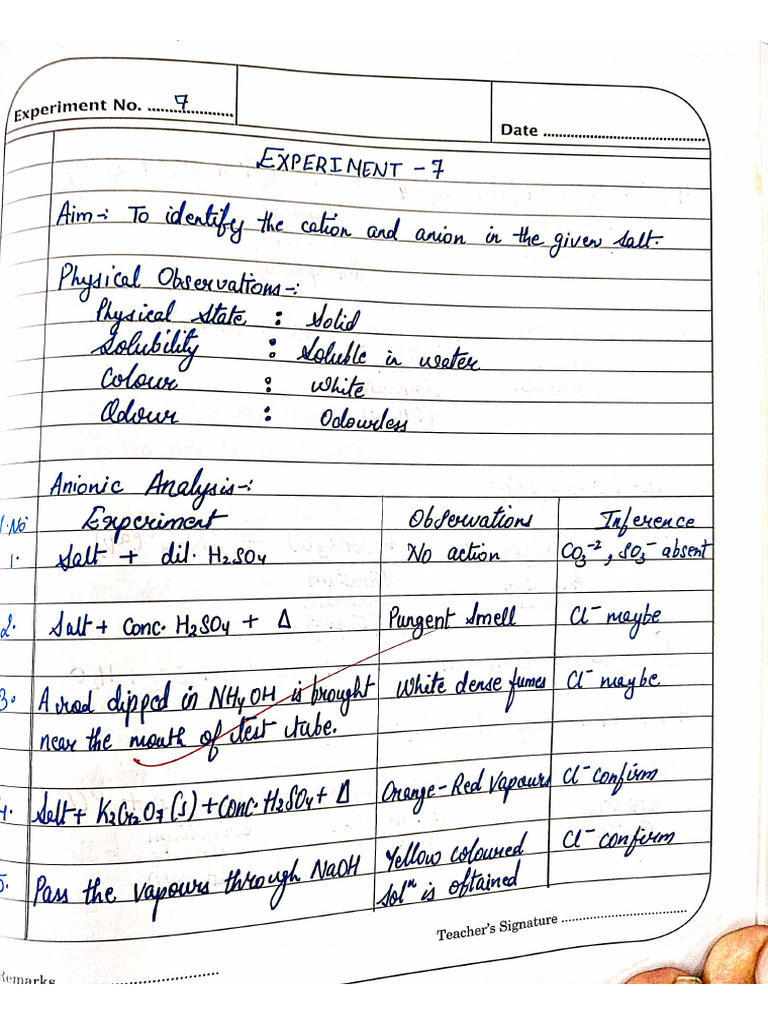 Experiment No. 7
Date
EXPERIMENT - 7
Aim-: To identify the cation and anion in the given salt.
Physical Observations-:
Physical state : Solid
Solubility : Soluble in water
Colour : White
Odour : Odourless
Anionic Analysis-:
No Experiment Observations Inference
1. Salt + dil. H2SO4 No action CO3-2, SO3- absent
2. Salt + Conc. H2SO4 + Δ Pungent Smell Cl- maybe
3. A rod dipped in NH4OH is brought White dense fumes Cl- maybe
near the mouth of test tube.
4. Salt + K2Cr2O7(s) + Conc. H2SO4 + Δ Orange-Red Vapours Cl- confirm
5. Pass the vapours through NaOH Yellow coloured Cl- confirm
soln is obtained
Teacher's Signature
Remarks